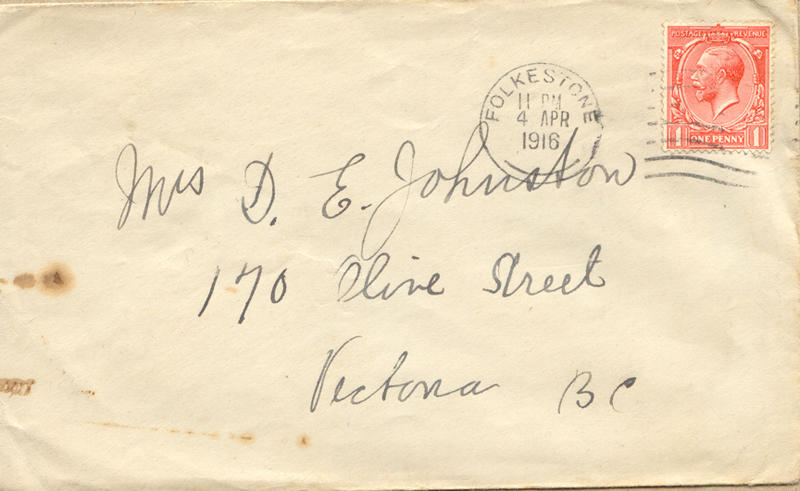 POSTAGE REVENUE
1 ONE PENNY 1
FOLKESTONE
11 PM
4 APR
1916
Mrs D. E. Johnston
170 Olive Street
Victoria BC